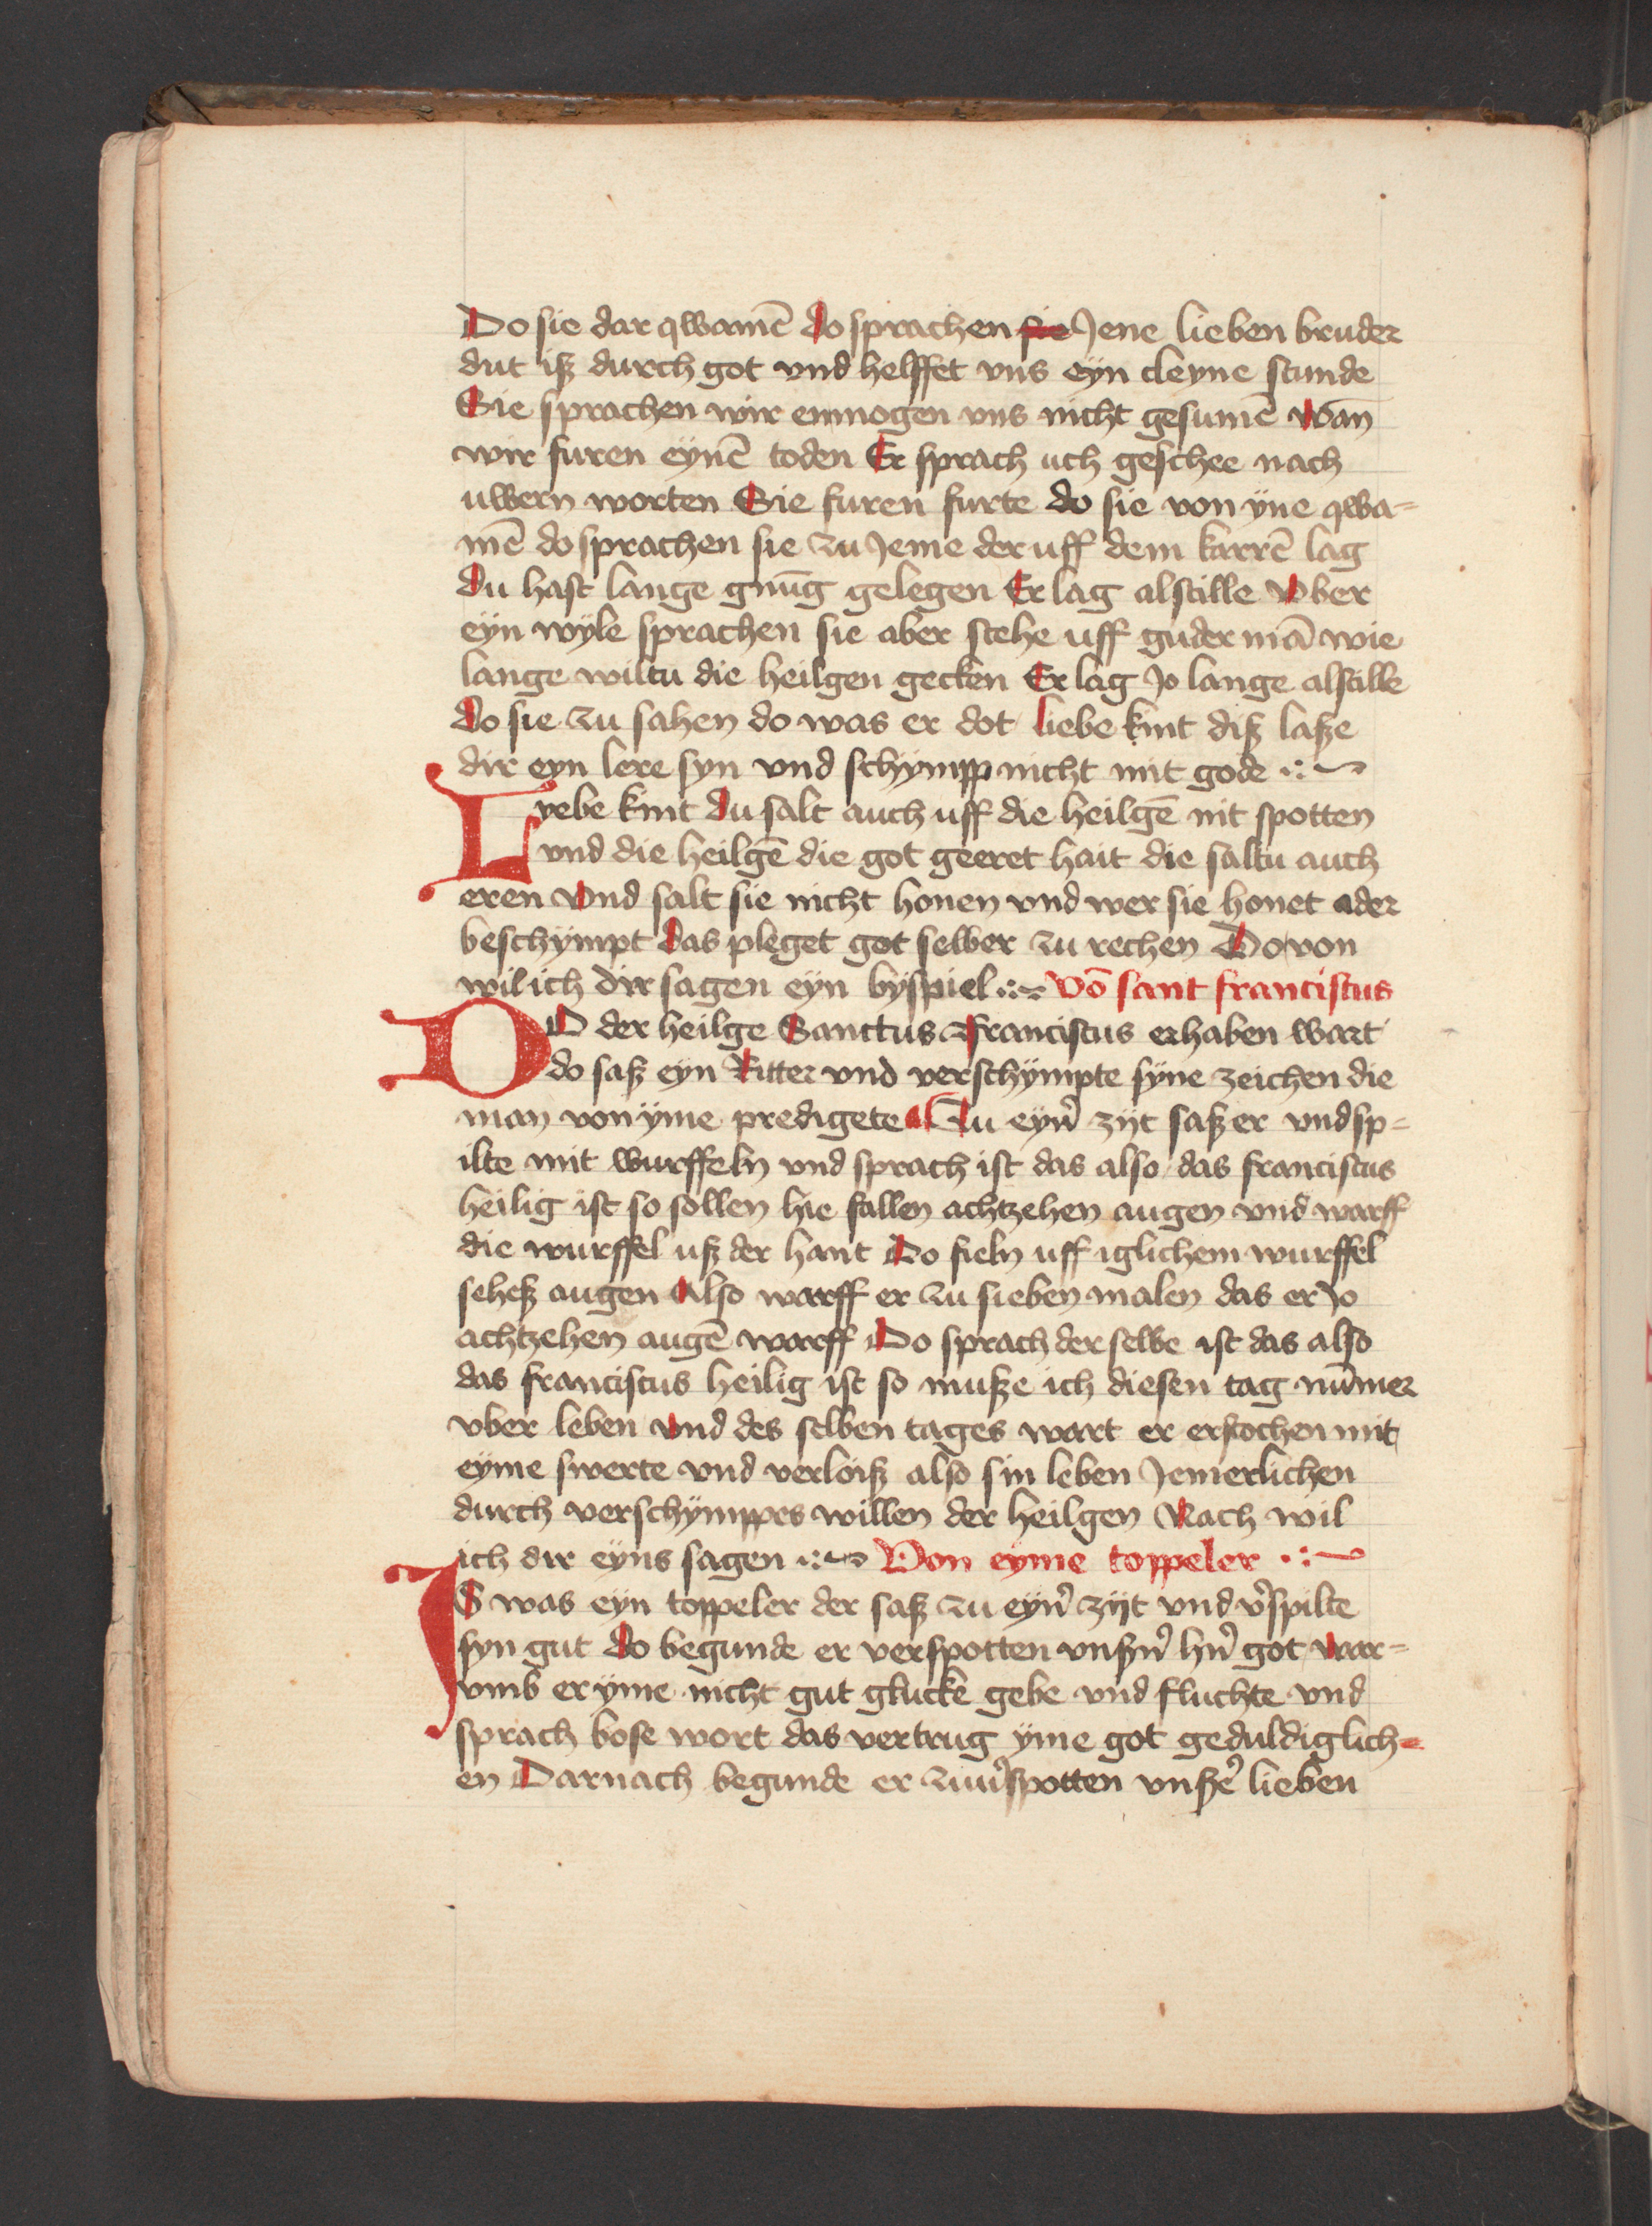 Do sie dar qwamē do sprachen sie Jene lieben bruder
dut iß durch got vnd helffet vns eyn cleyne stunde
Sie sprachen wir enmogen vns nicht gesumē wan̄
wir furen eynē toden Er sprach uch geschee nach
uwern worten Sie furen furte do sie von yne qwa=
mē do sprachen sie zu Jeme der uff dem karrē lag
du hast lange gnūg gelegen Er lag alstille Vber
eyn wyle sprachen sie aber stehe uff guder mā wie
lange wiltu die heilgen gecken Er lag Jo lange alstille
do sie zu sahen do was er dot liebe kint diß laße
dir eyn lere syn vnd schympp nicht mit gode
Lyebe kint du salt auch uff die heilgē nit spotten
vnd die heilgē die got geeret hait die saltu auch
eren vnd salt sie nicht honen vnd wer sie honet ader
beschympt das pleget got selber zu rechen Do von
wil ich dir sagen eyn byspiel Vō sant franciscus
DO der heilge Sanctus Franciscus erhaben wart
do saß eyn Ritter vnd verschympte syne zeichen die
man von yme predigete Zu eyn̛ zijt saß er vnd sp=
ilte mit wurffeln vnd sprach ist das also das franciscus
heilig ist so sollen hie fallen achtzehen augen vnd warff
die wurffel uß der hant Do fieln uff iglichem wurffel
seheß augen Also warff er zu sieben malen das er Jo
achtzehen augē warff Do sprach der selbe ist das also
das franciscus heilig ist so muße ich diesen tag nūmer
vber leben vnd des selben tages wart er erstochen mit
eyme swerte vnd verloiß also sin leben Jemerlichen
durch verschymppes willen der heilgen Nach wil
ich dir eyns sagen Von eyme toppeler
IS was eyn toppeler der saß zu eyn̛ zijt vnd v̛spilte
syn gut do begunde er verspotten vnßn̛ hn̛ got war=
vmb er yme nicht gut glucke gebe vnd fluchte vnd
sprach bose wort das vertrug yme got geduldiglich=
en Darnach begunde er zuưspotten vnße̛ lieben